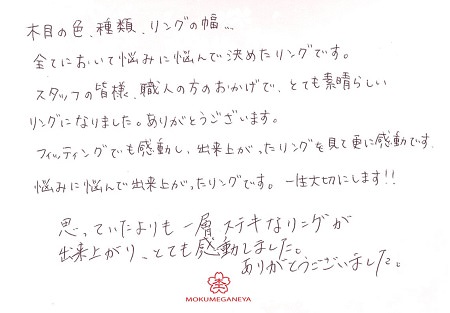 木目の色、種類、リングの幅…
全てにおいて悩みに悩んで決めたリングです。
スタッフの皆様、職人の方のおかげで、とても素晴らしい
リングになりました。ありがとうございます。
フィッティングでも感動し、出来上がったリングを見て更に感動です。
悩みに悩んで出来上がったリングです。一生大切にします!!
思っていたよりも一層ステキなリングが
出来上がり、とても感動しました。
ありがとうございました。
MOKUMEGANEYA